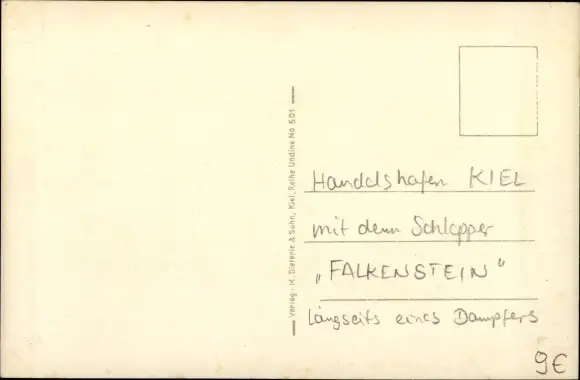 Verlag: M. Dieterle & Sohn, Kiel, Reihe Undine No 501
Handelshafen KIEL
mit dem Schlepper
„FALKENSTEIN“
längseits eines Dampfers
9€